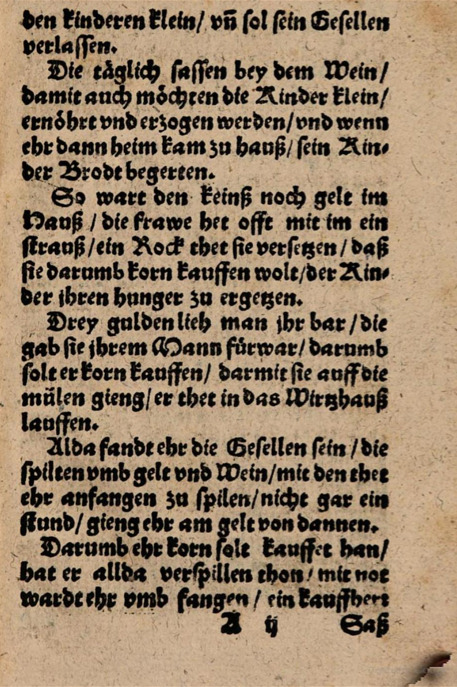 den kinderen klein/ vñ sol sein Gesellen
verlassen.
Die täglich sassen bey dem Wein/
damit auch möchten die Kinder klein/
ernöhrt vnd erzogen werden/ vnd wenn
ehr dann heim kam zu hauß/ sein Kin-
der Brodt begerten.
So wart den keinß noch gelt im
Hauß / die frawe het offt mit im ein
strauß/ ein Rock thet sie versetzen / daß
sie darumb korn kauffen wolt/ der Kin-
der jhren hunger zu ergetzen.
Drey gulden lieh man jhr bar / die
gab sie jhrem Mann fürwar/ darumb
solt er korn kauffen/ darmit sie auff die
mülen gieng/ er thet in das Wirtzhauß
lauffen.
Alda fandt ehr die Gesellen sein / die
spilten vmb gelt vnd Wein/ mit den thet
ehr anfangen zu spilen/ nicht gar ein
stund/ gieng ehr am gelt von dannen.
Darumb ehr korn solt kauffet han/
hat er allda verspillen thon/ mit not
wardt ehr vmb fangen / ein kauffherr
A ij Saß